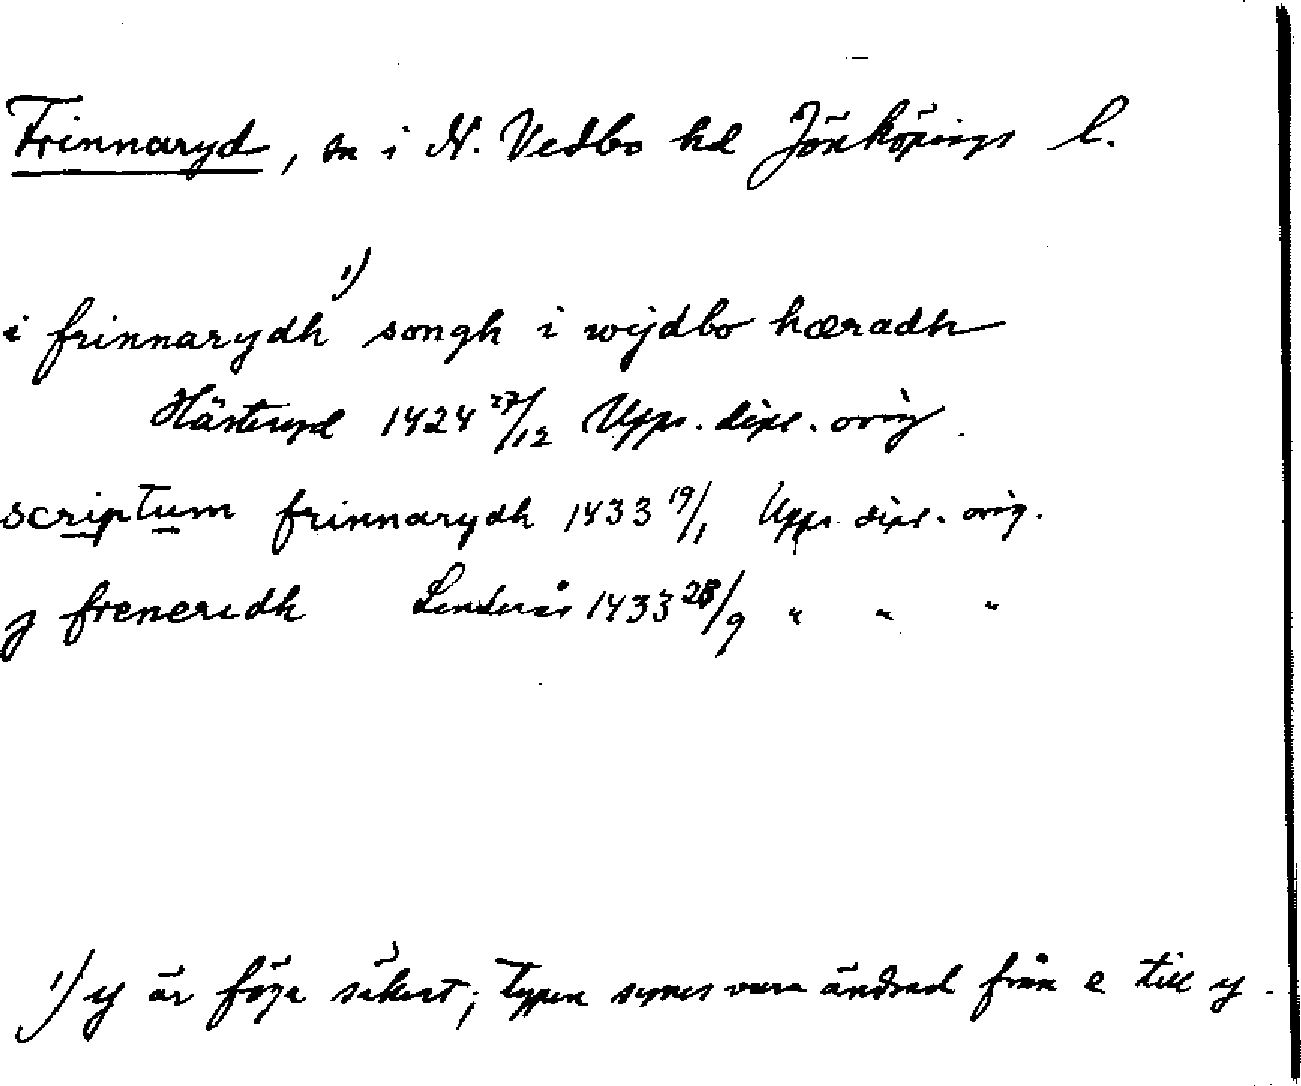 Frinnaryd, sn i N. Vedbo hd Jönköpings l.
i frinnarydh ¹⁾ songh i wijdbo hæradh
Hästeryd 1424 27/12 Upps. dipl. orig.
scriptum frinnarydh 1433 19/1 Upps. dipl. orig.
j freneridh Linderås 1433 28/9 " " "
¹⁾ y är föga säkert; typen synes vara ändrad från e till y.